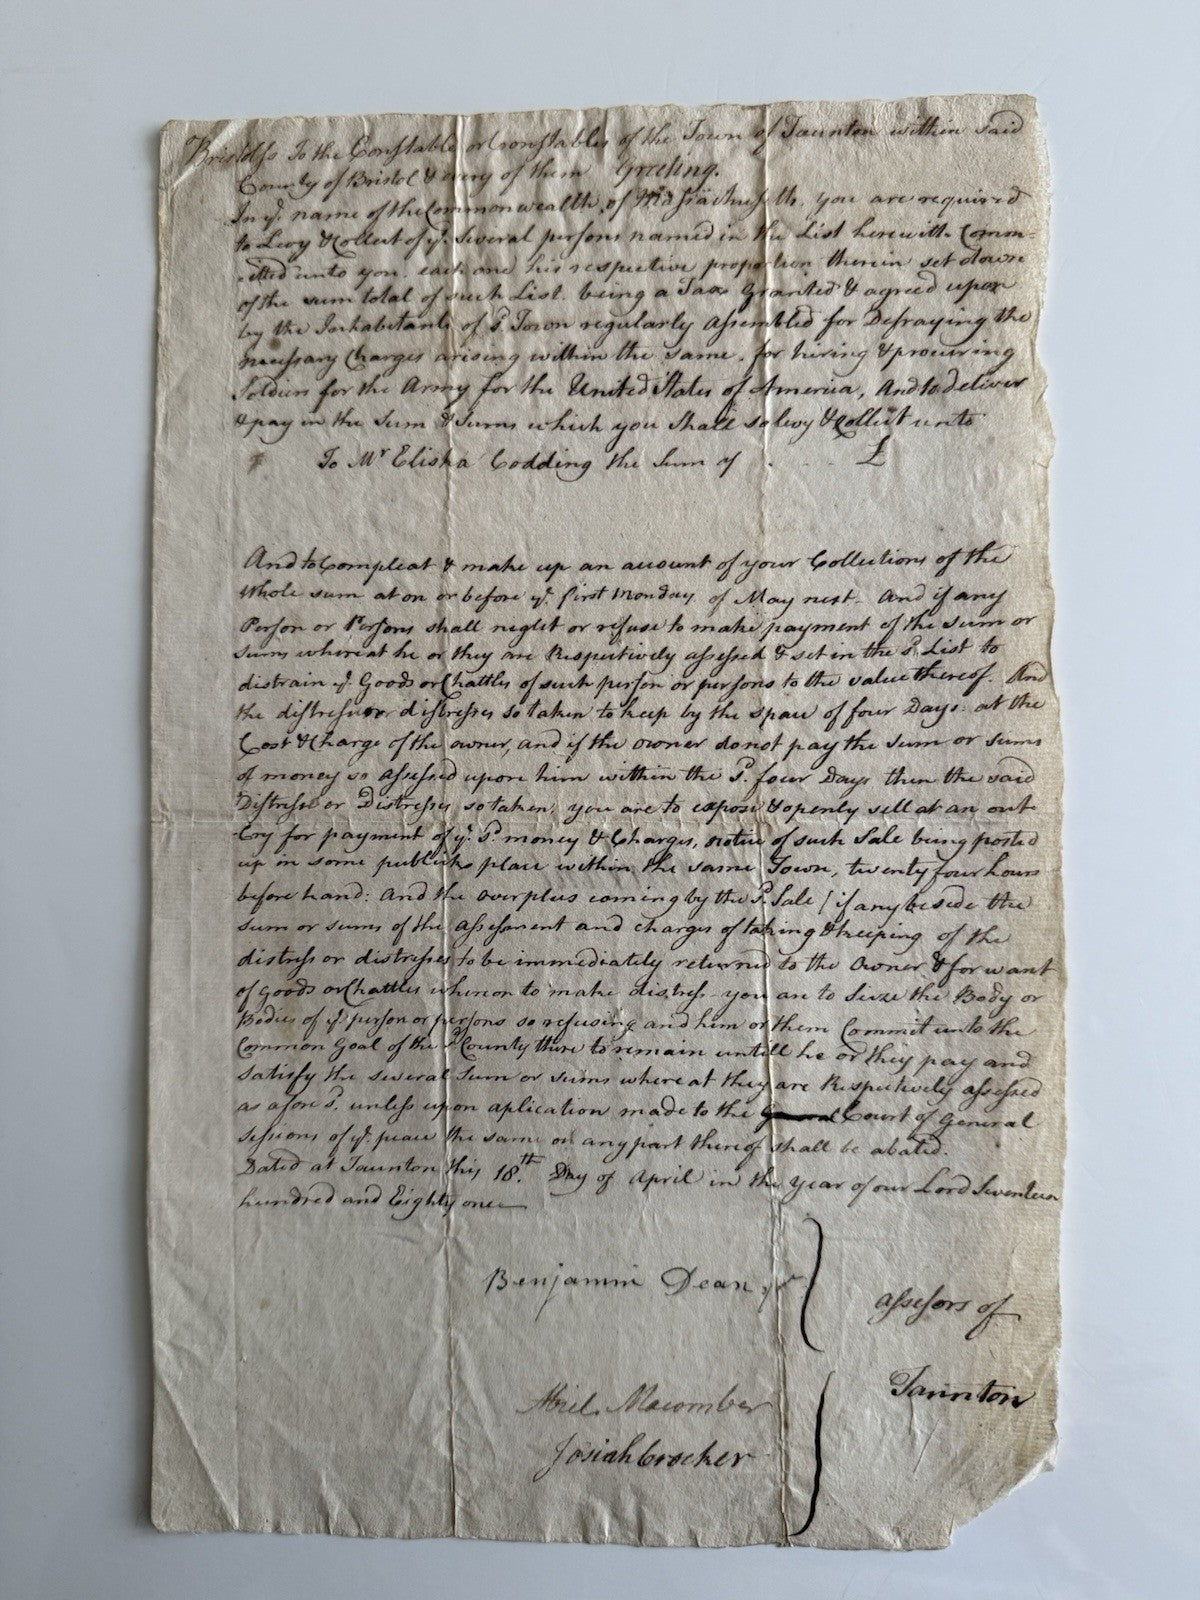 Bristol ss To the Constable or Constables of the Town of Taunton within said
County of Bristol & every of them Greeting.
In ye. name of the Commonwealth of Massachusetts, you are required
to Levy & Collect of ye. Several persons named in the List herewith Comm-
-itted unto you. each one his respective proportion therein set down
of the sum total of such List. being a Tax Granted & agreed upon
by the Inhabitants of sd. Town regularly Assembled for Defraying the
necessary Charges arising within the same. for hiring & procuring
Soldiers for the Army for the United States of America, And to deliver
& pay in the Sum & Sums which you shall so levy & Collect unto
To Mr Elisha Codding the Sum of £
And to Compleat & make up an account of your Collections of the
Whole sum at on or before ye. first Monday of May next. And if any
Person or Persons shall neglet or refuse to make payment of the sum or
sums whereat he or they are Respectively assessed & set in the sd. List to
distrain ye. Goods or Chattles of such person or persons to the value thereof. And
the distress or distresses so taken to keep by the space of four Days. at the
Cost & Charge of the owner, and if the owner do not pay the sum or sums
of money so assessed upon him within the sd. four Days then the said
Distress or Distresses, so taken, you are to expose & openly sell at an out
Cry for payment of ye. sd. money & Charges, notice of such Sale being posted
up in some publick place within the same Town, twenty four hours
before hand: And the overplus coming by the sd. Sale / if any beside the
sum or sums of the assessment and charges of taking & keeping of the
distress or distresses to be immediately returned to the Owner & for want
of Goods or Chattles whereon to make distress you are to Seize the Body or
Bodies of ye. person or persons so refusing and him or them Commit unto the
Common Goal of the sd. County there to remain untill he or they pay and
satisfy the several Sum or sums where at they are Respectively assessed
as afore sd. unless upon aplication made to the Court of General
sessions of ye. peace the same or any part thereof shall be abated.
Dated at Taunton this 18.th Day of April in the year of our Lord Seventeen
hundred and Eighty one
Benjamin Dean, jr
Assessors of
Taunton
Abiel Macomber
Josiah Crocker